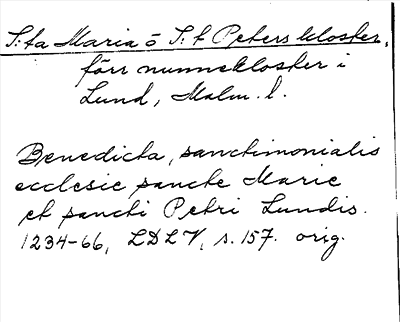 S:ta Maria o S:t Peters kloster,
förr nunnekloster i
Lund, Malm. l.
Benedicta, sanctimonialis
ecclesie sancte Marie
et sancti Petri Lundis.
1234-66, LDLV, s. 157. orig.